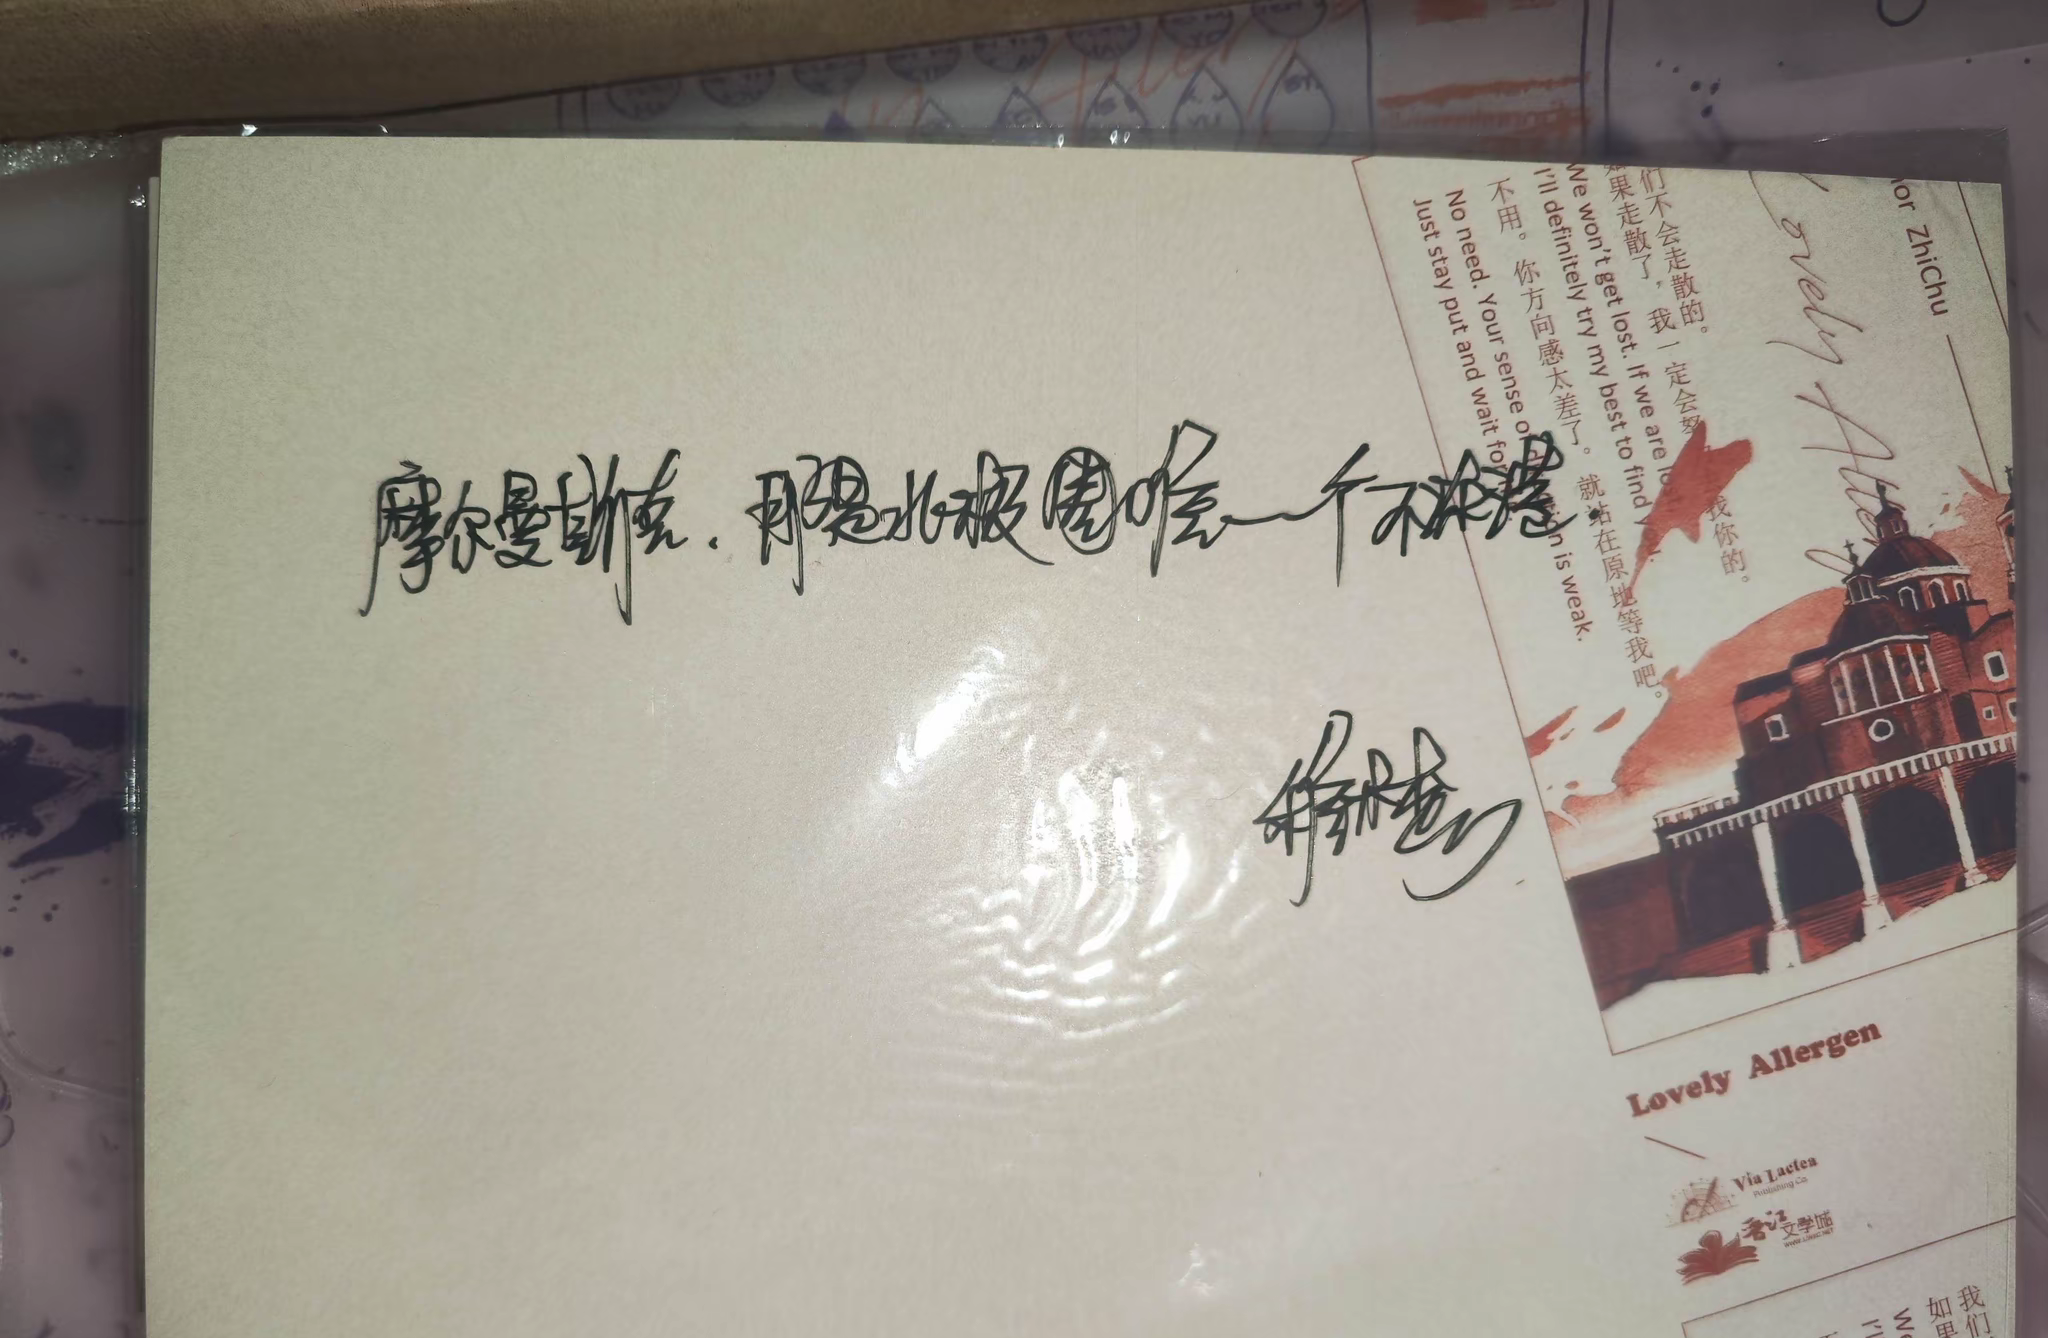 摩尔曼斯克.那是北极圈唯一个不冻港.
们不会走散的。
如果走散了，我一定会努 找你的。
We won't get lost. If we are lo
I'll definitely try my best to find y
不用。你方向感太差了。就站在原地等我吧。
No need. Your sense of is weak.
Just stay put and wait for
or ZhiChu
Lovely Allergen
Via Lactea
Publishing Co
晋江文学城
WWW.JJWXC.NET
我们
如果
We